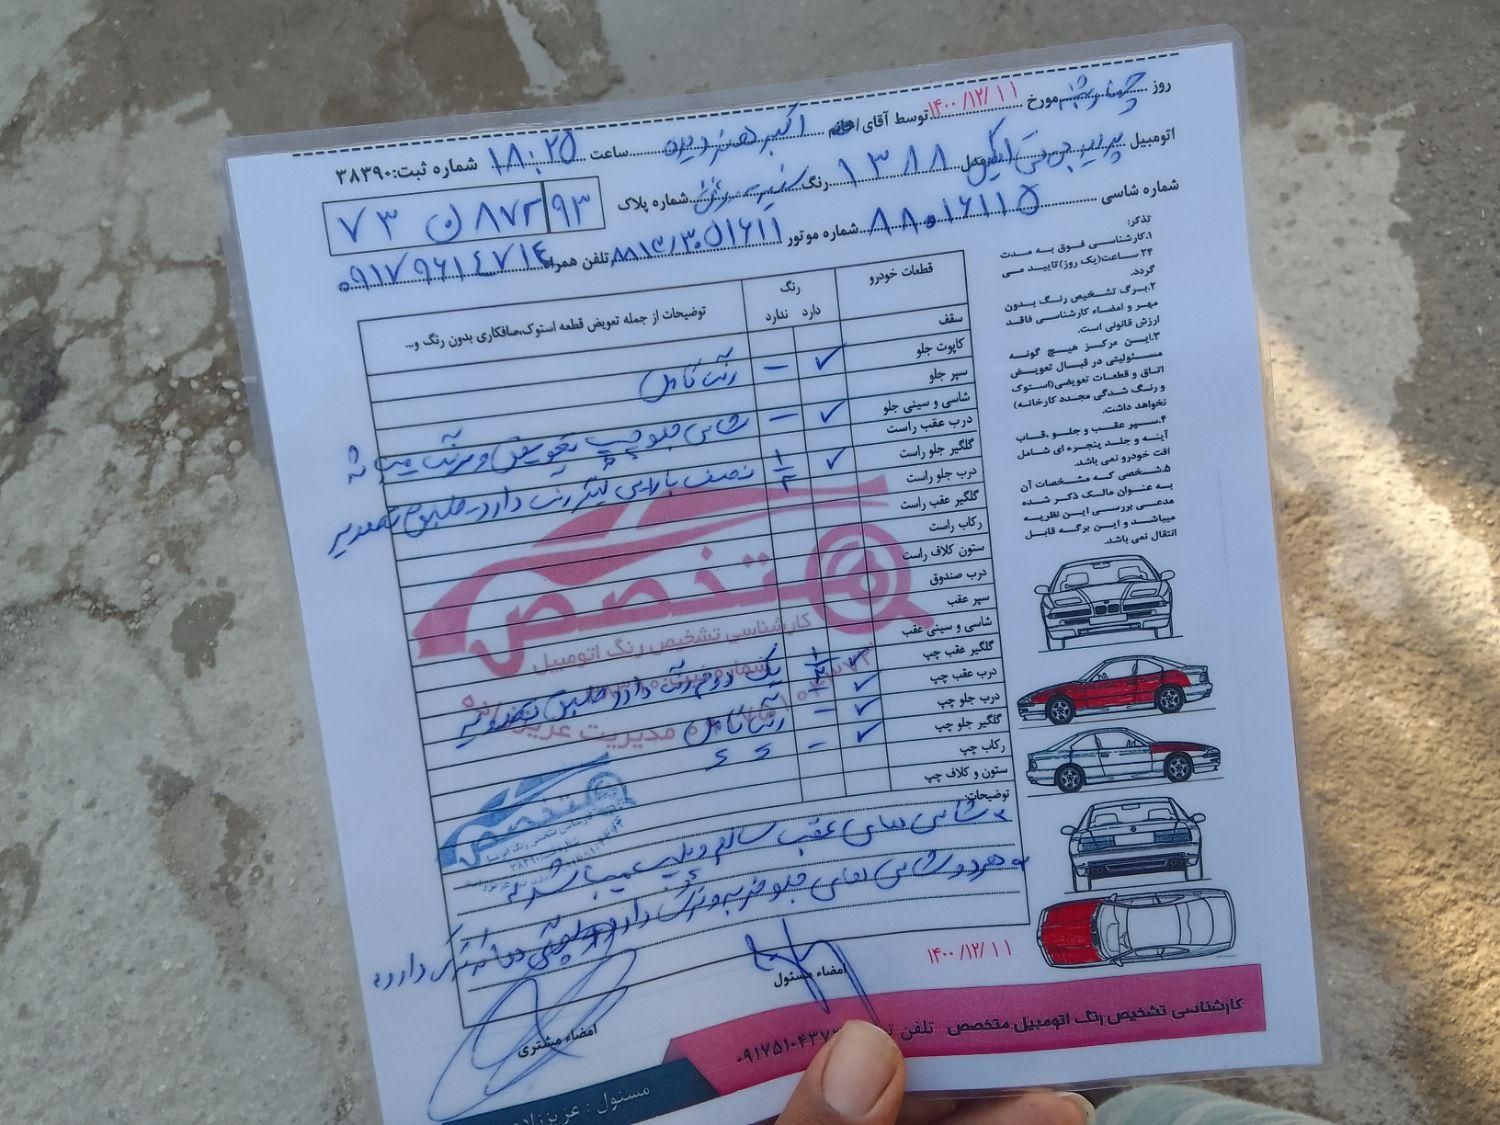 روز چهارشنبه مورخ ۱۴۰۰/۱۲/۱۱ توسط آقای/خانم اکبر هنرپیره ساعت ۱۸:۲۵ شماره ثبت:۳۸۳۹۰
اتومبیل مدل ۱۳۸۸ رنگ سفید روغنی شماره پلاک ۹۳ ۸۷۲ ن ۷۳
شماره شاسی ۸۸۰۱۶۱۱۵ شماره موتور تلفن همراه ۰۹۱۷۹۶۱۴۷۱۴
تذکر:
۱.کارشناسی فوق به مدت
۲۴ ساعت(یک روز)تایید می
گردد.
۲.برگ تشخیص رنگ بدون
مهر و امضاء کارشناسی فاقد
ارزش قانونی است.
۳.این مرکز هیچ گونه
مسئولیتی در قبال تعویض
اتاق و قطعات تعویضی(استوک
و رنگ شدگی مجدد کارخانه)
نخواهد داشت.
۴.سپر عقب و جلو ،قاب
آینه و جلد پنجره ای شامل
افت خودرو نمی باشد.
۵.شخصی که مشخصات آن
به عنوان مالک ذکر شده
مدعی بررسی این نظریه
میباشد و این برگه قابل
انتقال نمی باشد.
قطعات خودرو رنگ توضیحات از جمله تعویض قطعه استوک،صافکاری بدون رنگ و...
دارد ندارد
سقف
کاپوت جلو ✓ - رنگ کامل
سپر جلو
شاسی و سینی جلو ✓ - شاسی جلو چپ تعویض و رنگ میباشد
درب عقب راست
گلگیر جلو راست ✓ نصف رنگ دارد طبق تصویر
درب جلو راست
گلگیر عقب راست
رکاب راست
ستون کلاف راست
درب صندوق
سپر عقب
شاسی و سینی عقب
گلگیر عقب چپ
درب عقب چپ ✓ یک دوم رنگ دارد طبق تصویر
درب جلو چپ ✓ - رنگ کامل
گلگیر جلو چپ ✓ -
رکاب چپ
ستون و کلاف چپ
متخصص
کارشناسی تشخیص رنگ اتومبیل
توضیحات:
شاسی های عقب سالم و پلمپ میباشد
هر دو شاسی های جلو ضربه و رنگ دارد
امضاء مسئول
امضاء مشتری
۱۴۰۰/۱۲/۱۱
کارشناسی تشخیص رنگ اتومبیل متخصص
مسئول : عزیززاده